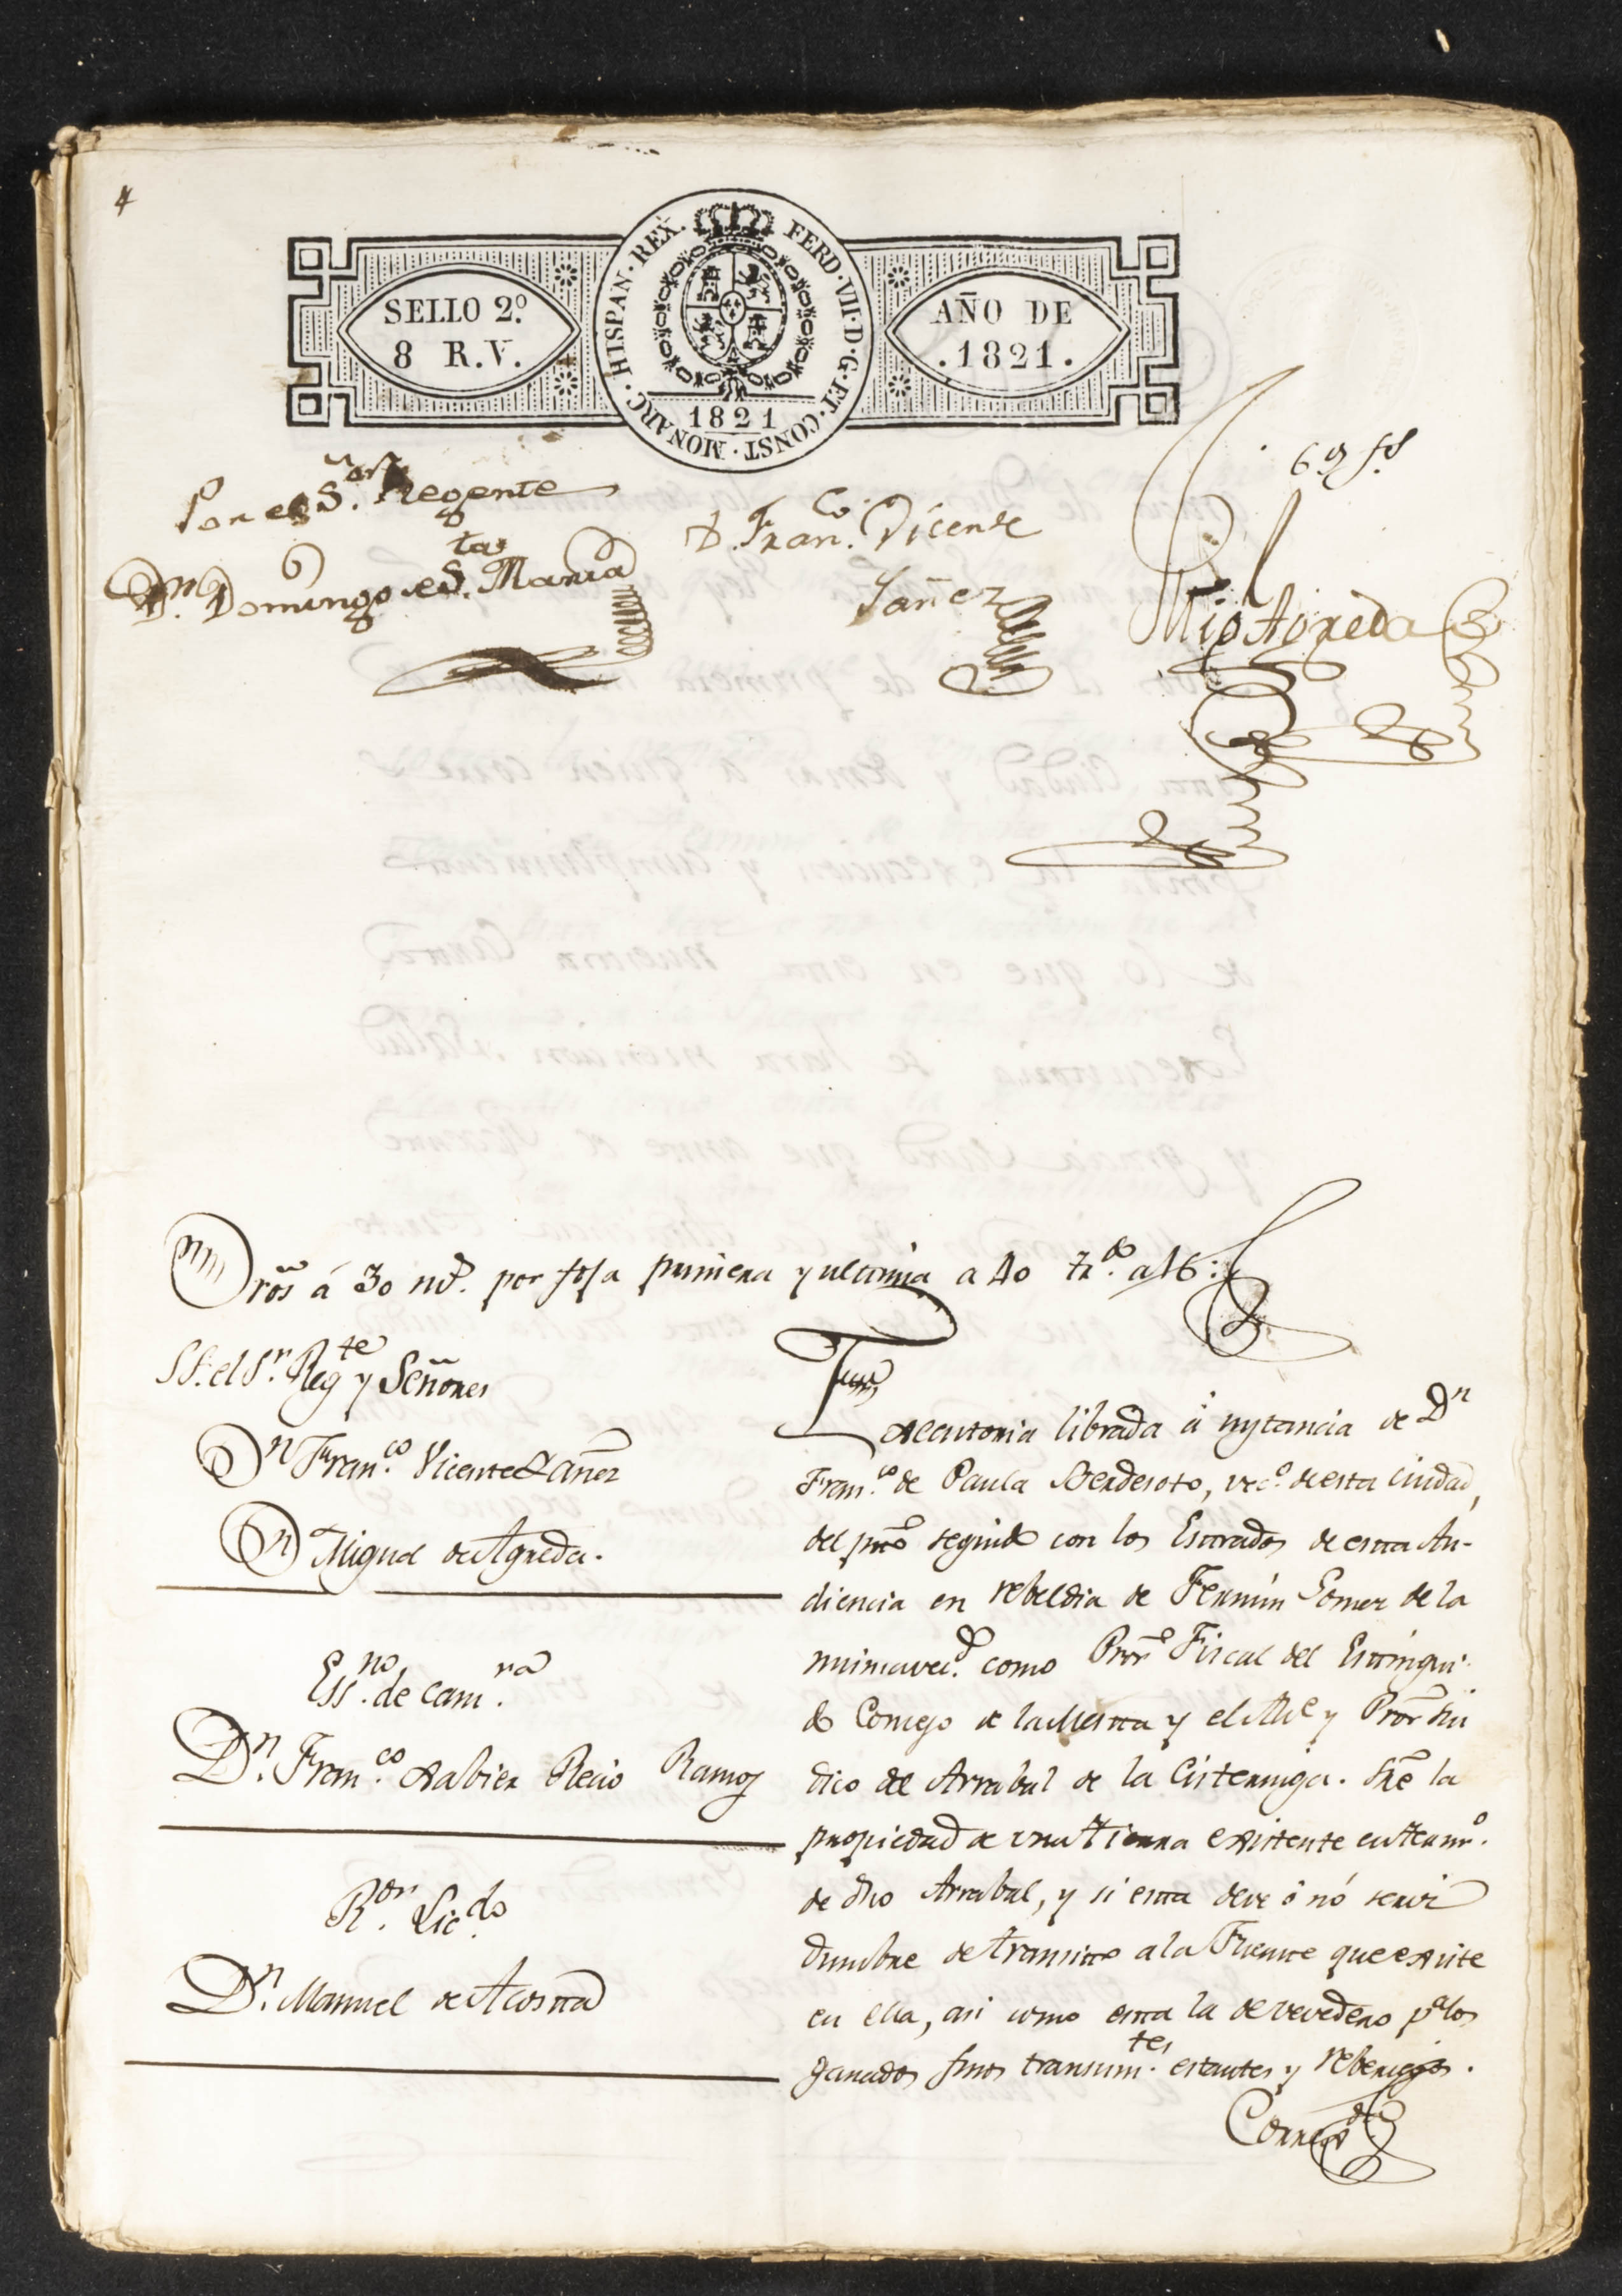 4
SELLO 2º.
8 R.V.
HISPAN · REX · FERD · VII · D · G · ET · CONST · MONARC ·
1821
AÑO DE
. 1821 .
Por el S.r Regente
D. Fran.co Vicente
Yañez
D.n Domingo de S.ta Maria
Mig Agreda
Dros á 30 mrs. por foja primera y ultima a 40
SS. el S.r Reg.te y Señores
D.n Fran.co Vicente Yañez
D.n Miguel de Agreda.
Ess.no de Cam.ra
D.n Fran.co Xabier Recio Ramos
R.or Lic.do
D.n Manuel de Acosta
Executoria librada á ynstancia de D.n
Fran.co de Paula Berdesoto, vec.o de esta Ciudad,
del pto seguido con los Estrados de esta Au-
diencia en rebeldia de Fermin Gomez de la
misma vec.d como Pror Fiscal del Estingui-
do Concejo de la Mesta y el Alc.e y Pror Sin
dico del Arrabal de la Cisterniga. Sre la
propiedad de una tierra existente en termno.
de dho Arrabal, y si esta deve ó nó servi
dumbre de transito a la Fuente que existe
en ella, asi como esta la de vevedero pa los
ganados finos transum.tes estantes y reberiegos.
Corregd.